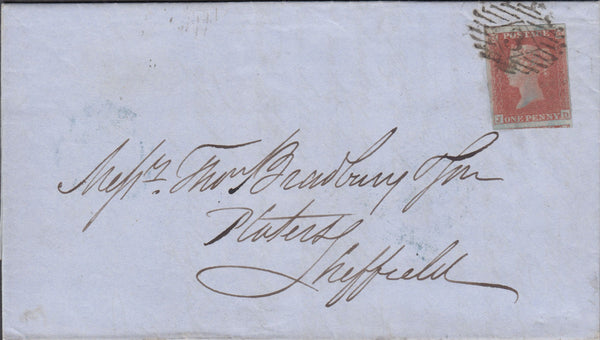 POSTAGE
ONE PENNY
Messrs. Thos. Bradbury & Son
Platers
Sheffield